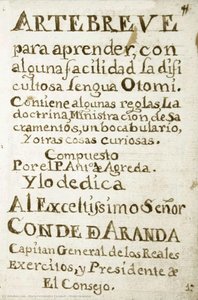 ARTE BREVE
para aprender, con
alguna facilidad la difi
cultosa lengua Otomi.
Contiene algunas reglas, La
doctrina, Ministracion de Sa
cramentos, un bocabulario,
Y otras cosas curiosas.
Compuesto
Por el P. Ant.º de Agreda.
Y lo dedica
Al Excelt.issimo Señor
CONDE D ARANDA
Capitan General de los Reales
Exercitos, y Presidente de
El Consejo.